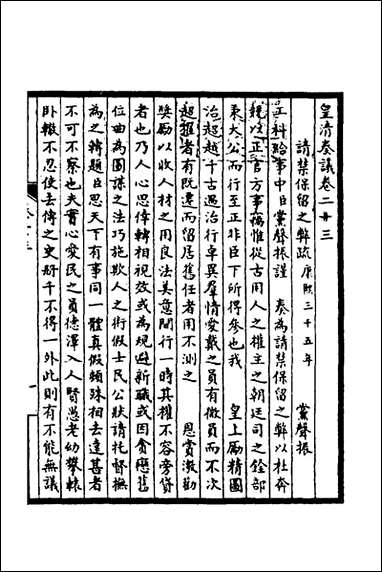 皇清奏議卷二十三
請禁保留之弊疏康熙三十五年 黨聲振
工科給事中臣黨聲振謹 奏為請禁保留之弊以杜奔
競以正官方事竊惟從古用人之權主之朝廷司之銓部
秉大公而行至正非臣下所得參也我 皇上勵精圖
治超越千古遇治行卓異羣情愛戴之員有徵員而不次
超擢者有既遷而留居舊任者用不測之 恩賞激勸
獎勵以收人材之用良法美意間行一時其權不容旁貸
者也乃人心思倖轉相視效或為規避新職或因貪戀舊
位曲為圖謀之法巧施欺人之術假士民公狀請托督撫
為之轉題臣思天下有事同一體真假頓殊相去遠甚者
不可不察也夫實心愛民之員德澤入人賢愚老幼攀轅
臥轍不忍使去傳之史冊千不得一外此則有不能無議